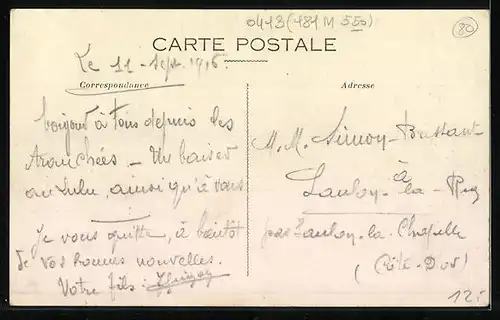 0413 (481 M 550)
80
CARTE POSTALE
Le 11 - Sept. 1916.
Correspondance
Adresse
bonjour à tous depuis les
Tranchées - Un baiser
au Lulu, ainsi qu'à vous
Je vous quitte, à bientôt
de vos bonnes nouvelles.
Votre fils:
M. M. Simon-
à
Saulon-la-Rue
par Saulon-la-Chapelle
(Côte-D'or)
12.-